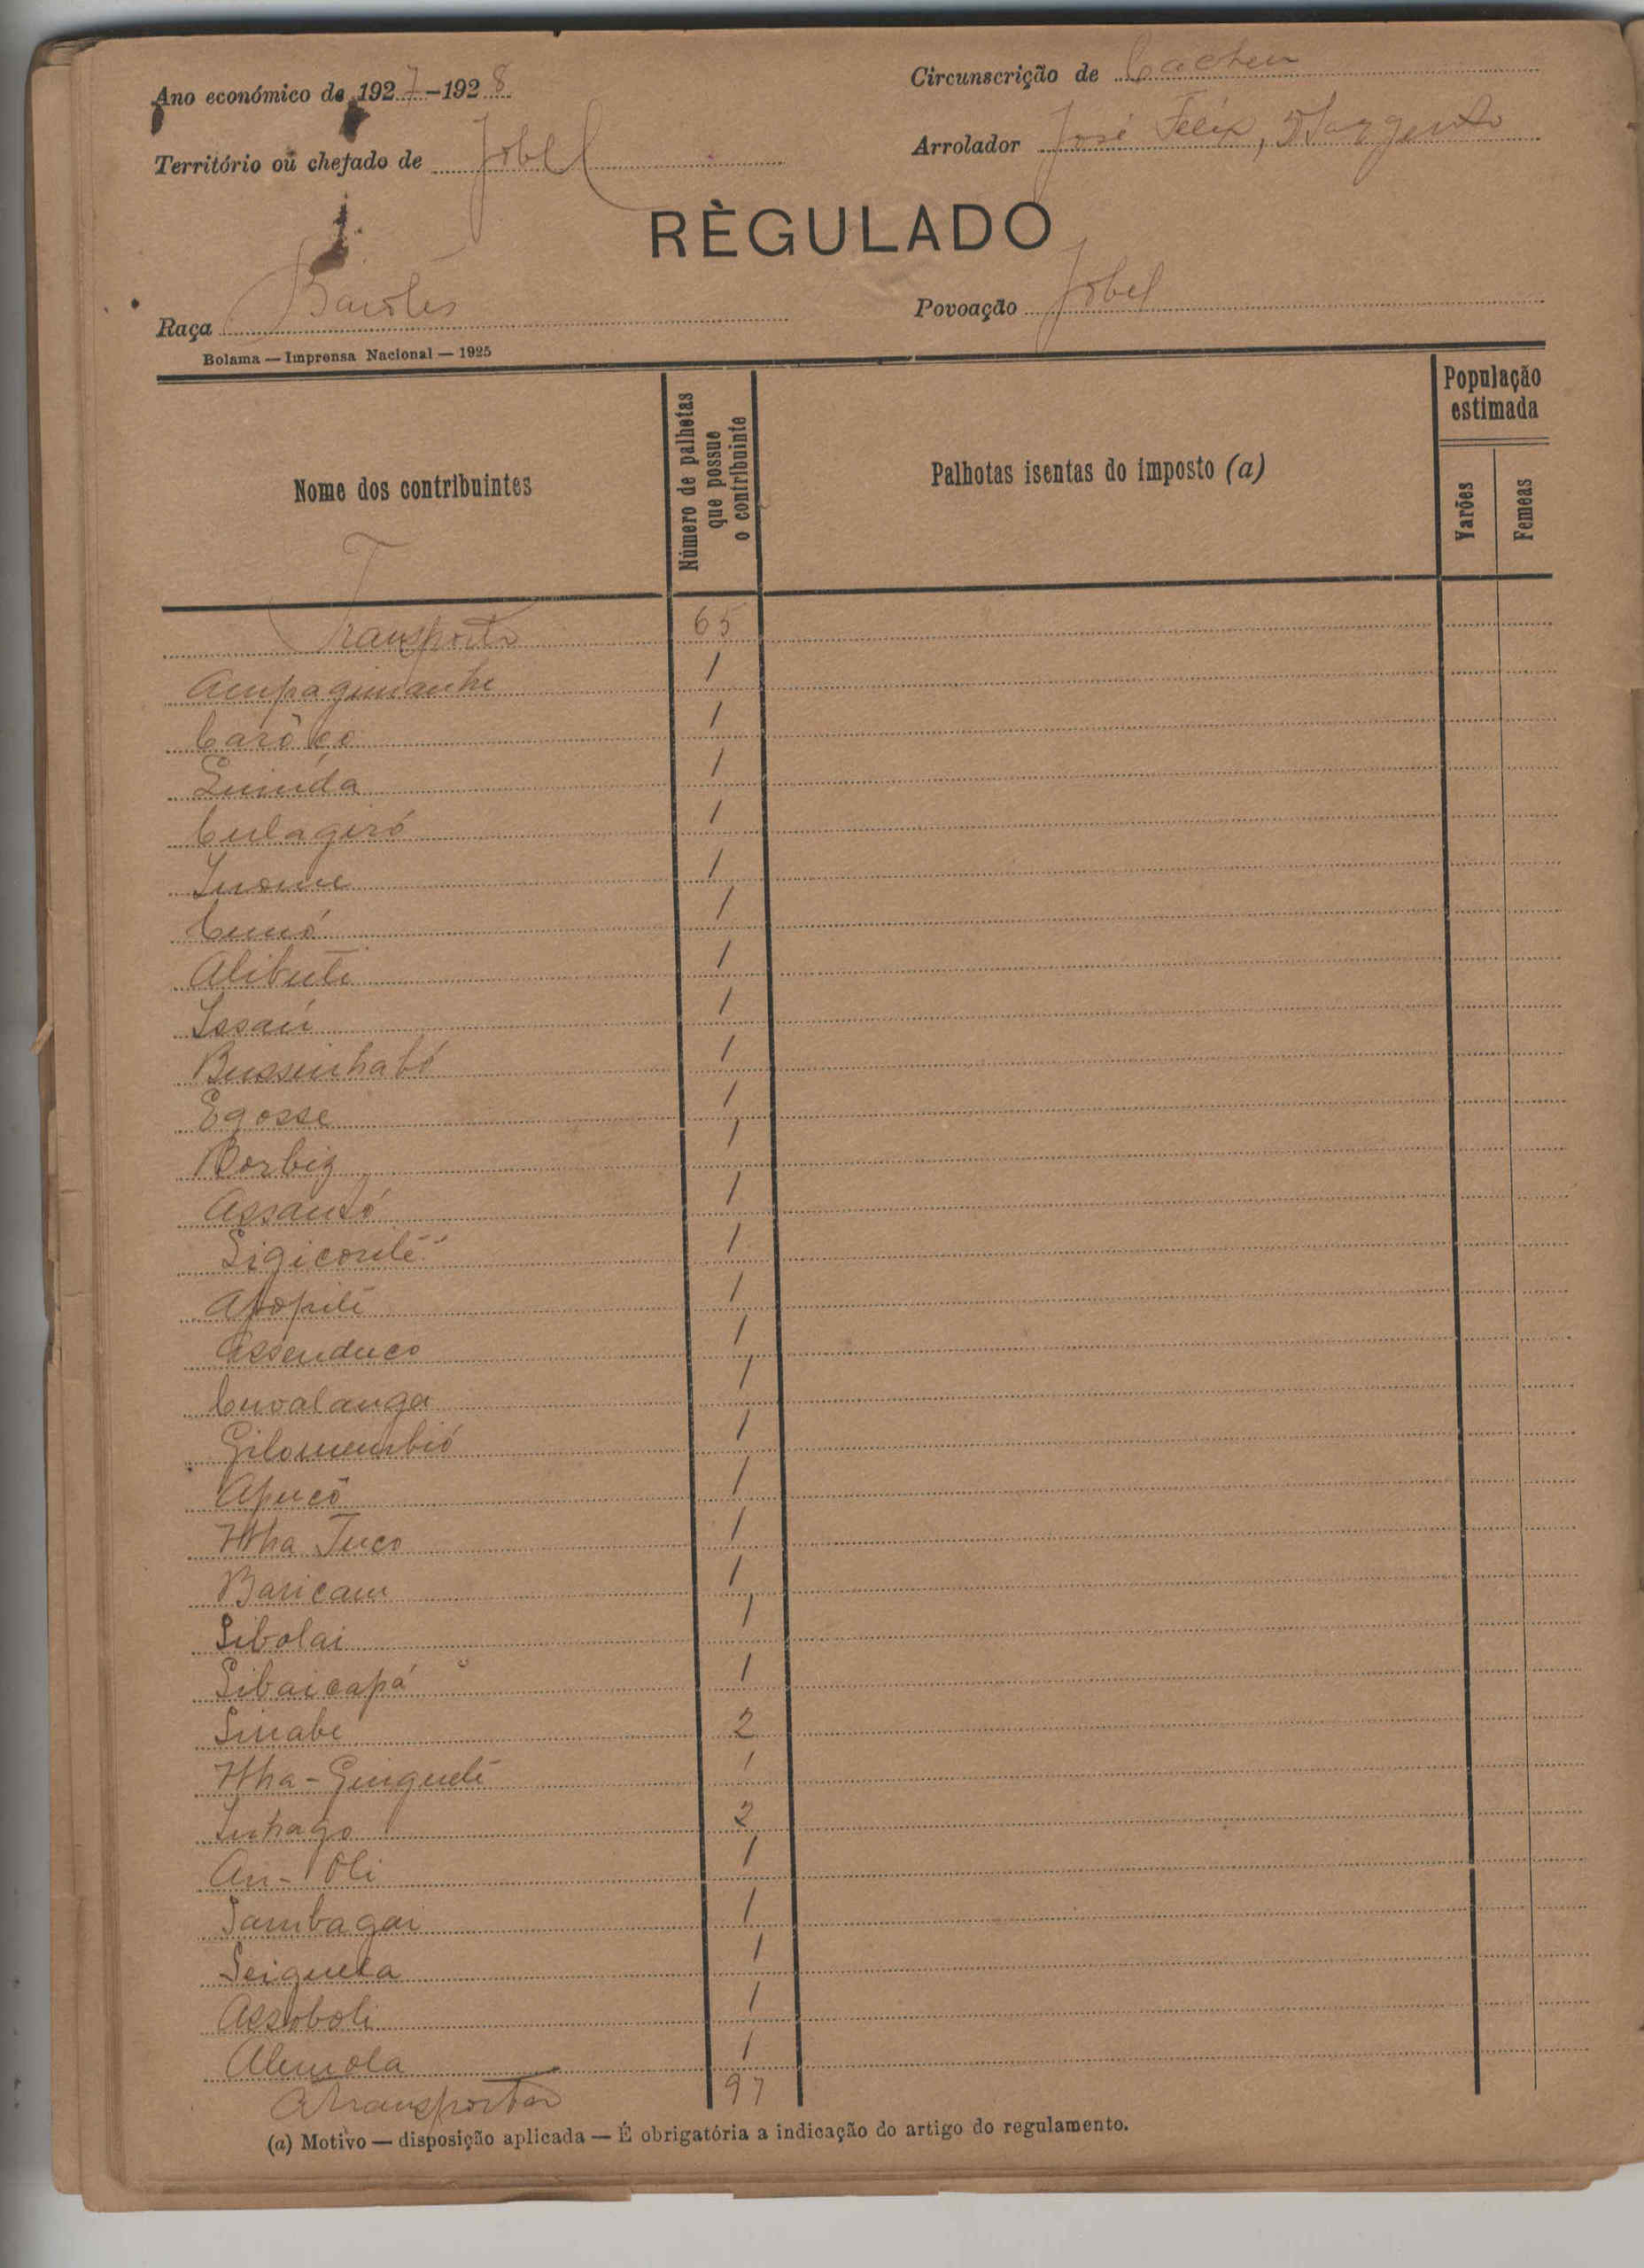 Ano económico de 1927-1928
Circunscrição de Cacheu
Território ou chefado de Jobel
Arrolador José Felix, 2º Sargento
RÈGULADO
Raça Baiotes
Povoação Jobel
Bolama — Imprensa Nacional — 1925
Nome dos contribuintes
Número de palhetas que possue o contribuinte
Palhotas isentas do imposto (a)
População estimada
Varões
Femeas
Transporte 65
Ampaguinanhe 1
Carôço 1
Quinda 1
Culagiró 1
Inome 1
Cumó 1
Alibute 1
Issaú 1
Bussinhabó 1
Egosse 1
Borbiz 1
Assantó 1
Sigicoutê 1
Apopile 1
Assenduco 1
Cuvalanga 1
Gilomembió 1
Apucô 1
Nha Tuco 1
Baricam 1
Sibolai 1
Sibaicapá 1
Sinabe 2
Nha-Guiguele 1
Inhago 2
An-Oli 1
Sambagai 1
Seiquela 1
Assoboli 1
Alemola 1
A transportar 97
(a) Motivo — disposição aplicada — É obrigatória a indicação do artigo do regulamento.